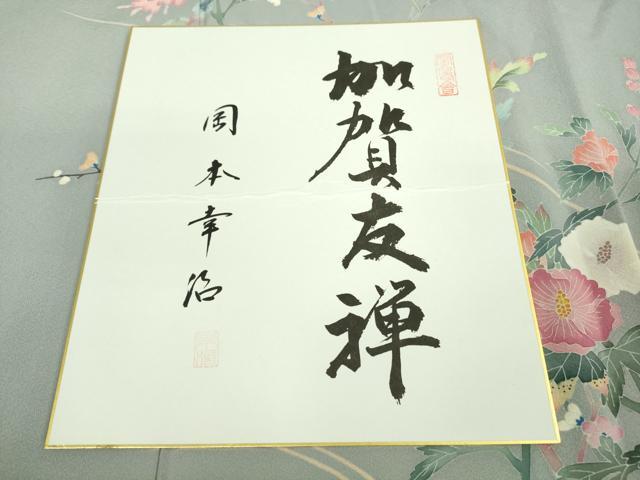 加賀友禅
岡本幸治